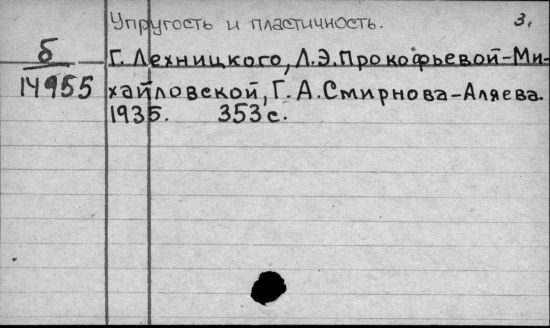 Упругость и пластичность. 3.
б
14955
Г. Лехницкого, Л.Э. Прокофьевой-Ми-
хайловской, Г. А. Смирнова-Аляева.
1935. 353 с.